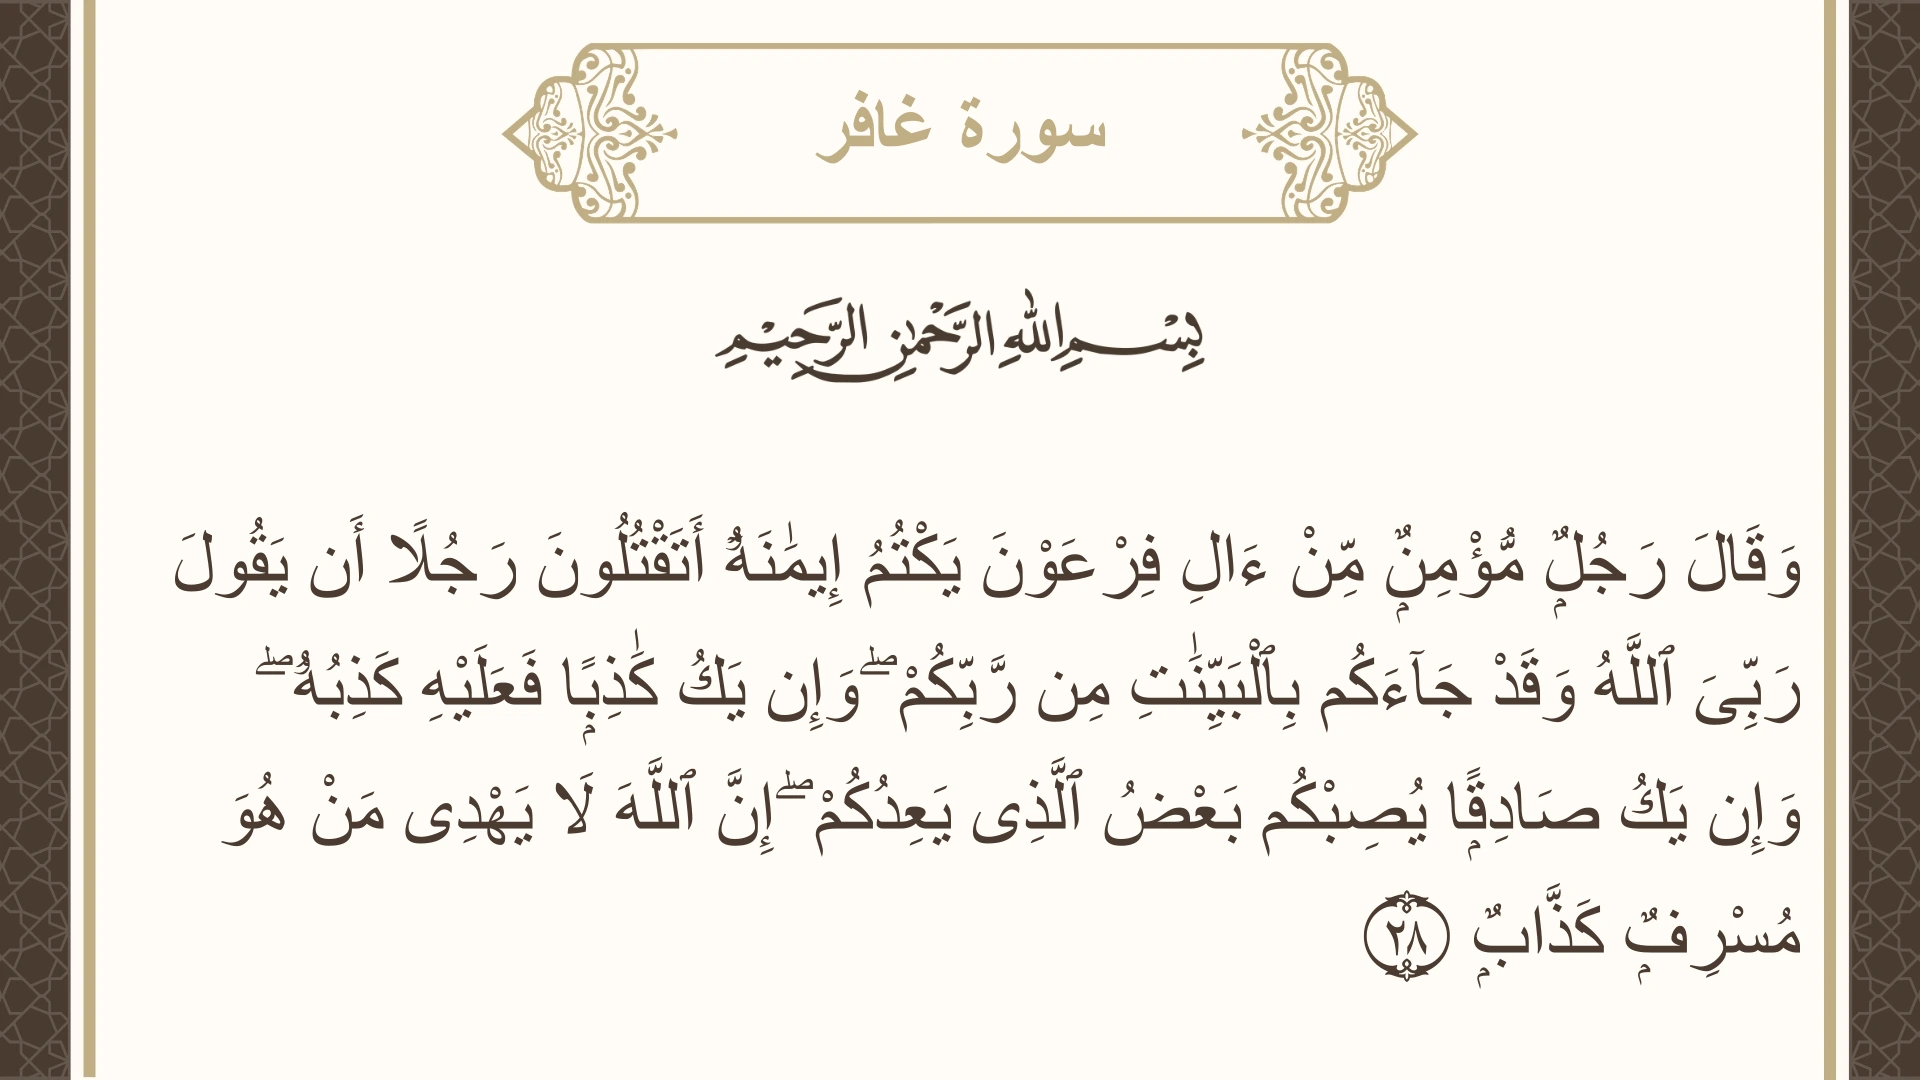 سورة غافر
بِسْمِ اللهِ الرَّحْمٰنِ الرَّحِيْمِ
وَقَالَ رَجُلٌۭ مُّؤْمِنٌۭ مِّنْ ءَالِ فِرْعَوْنَ يَكْتُمُ إِيمَـٰنَهُۥٓ أَتَقْتُلُونَ رَجُلًا أَن يَقُولَ
رَبِّىَ ٱللَّهُ وَقَدْ جَآءَكُم بِٱلْبَيِّنَـٰتِ مِن رَّبِّكُمْ ۖ وَإِن يَكُ كَـٰذِبًۭا فَعَلَيْهِ كَذِبُهُۥ ۖ
وَإِن يَكُ صَادِقًۭا يُصِبْكُم بَعْضُ ٱلَّذِى يَعِدُكُمْ ۖ إِنَّ ٱللَّهَ لَا يَهْدِى مَنْ هُوَ
مُسْرِفٌۭ كَذَّابٌۭ ٢٨